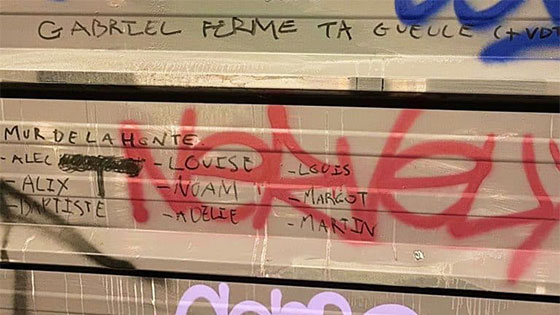 GABRIEL FERME TA GUEULE (+VDT
MUR DE LA HONTE.
- ALEC - LOUISE - LOUIS
- ALIX - NOAM - MARGOT
- BAPTISTE - ADELIE - MARTIN